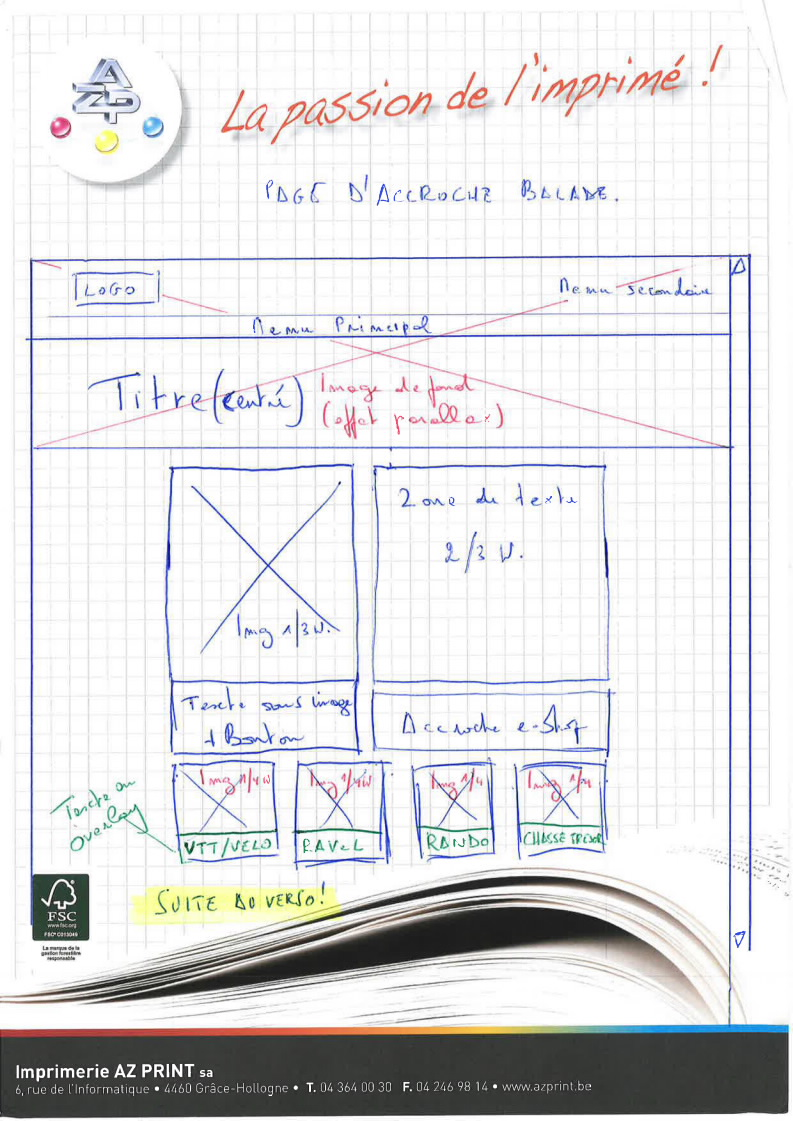 AZP
La passion de l'imprimé !
PAGE D'ACCROCHE BALADE.
LOGO
Menu secondaire
Menu Principal
Titre (centré)
Image de fond
(effet parallax)
Zone de texte
2/3 W.
Img 1/3 W.
Texte sous image
+ Bouton
Accroche e-Shop
Img 1/4 W
Img 1/4 W
Img 1/4
Img 1/4
Texte en
overlay
VTT/VELO
RAVeL
RANDO
CHASSE TRESOR
SUITE AU VERSO!
FSC
www.fsc.org
FSC® C013049
La marque de la
gestion forestière
responsable
Imprimerie AZ PRINT sa
6, rue de l'Informatique • 4460 Grâce-Hollogne • T. 04 364 00 30 F. 04 246 98 14 • www.azprint.be